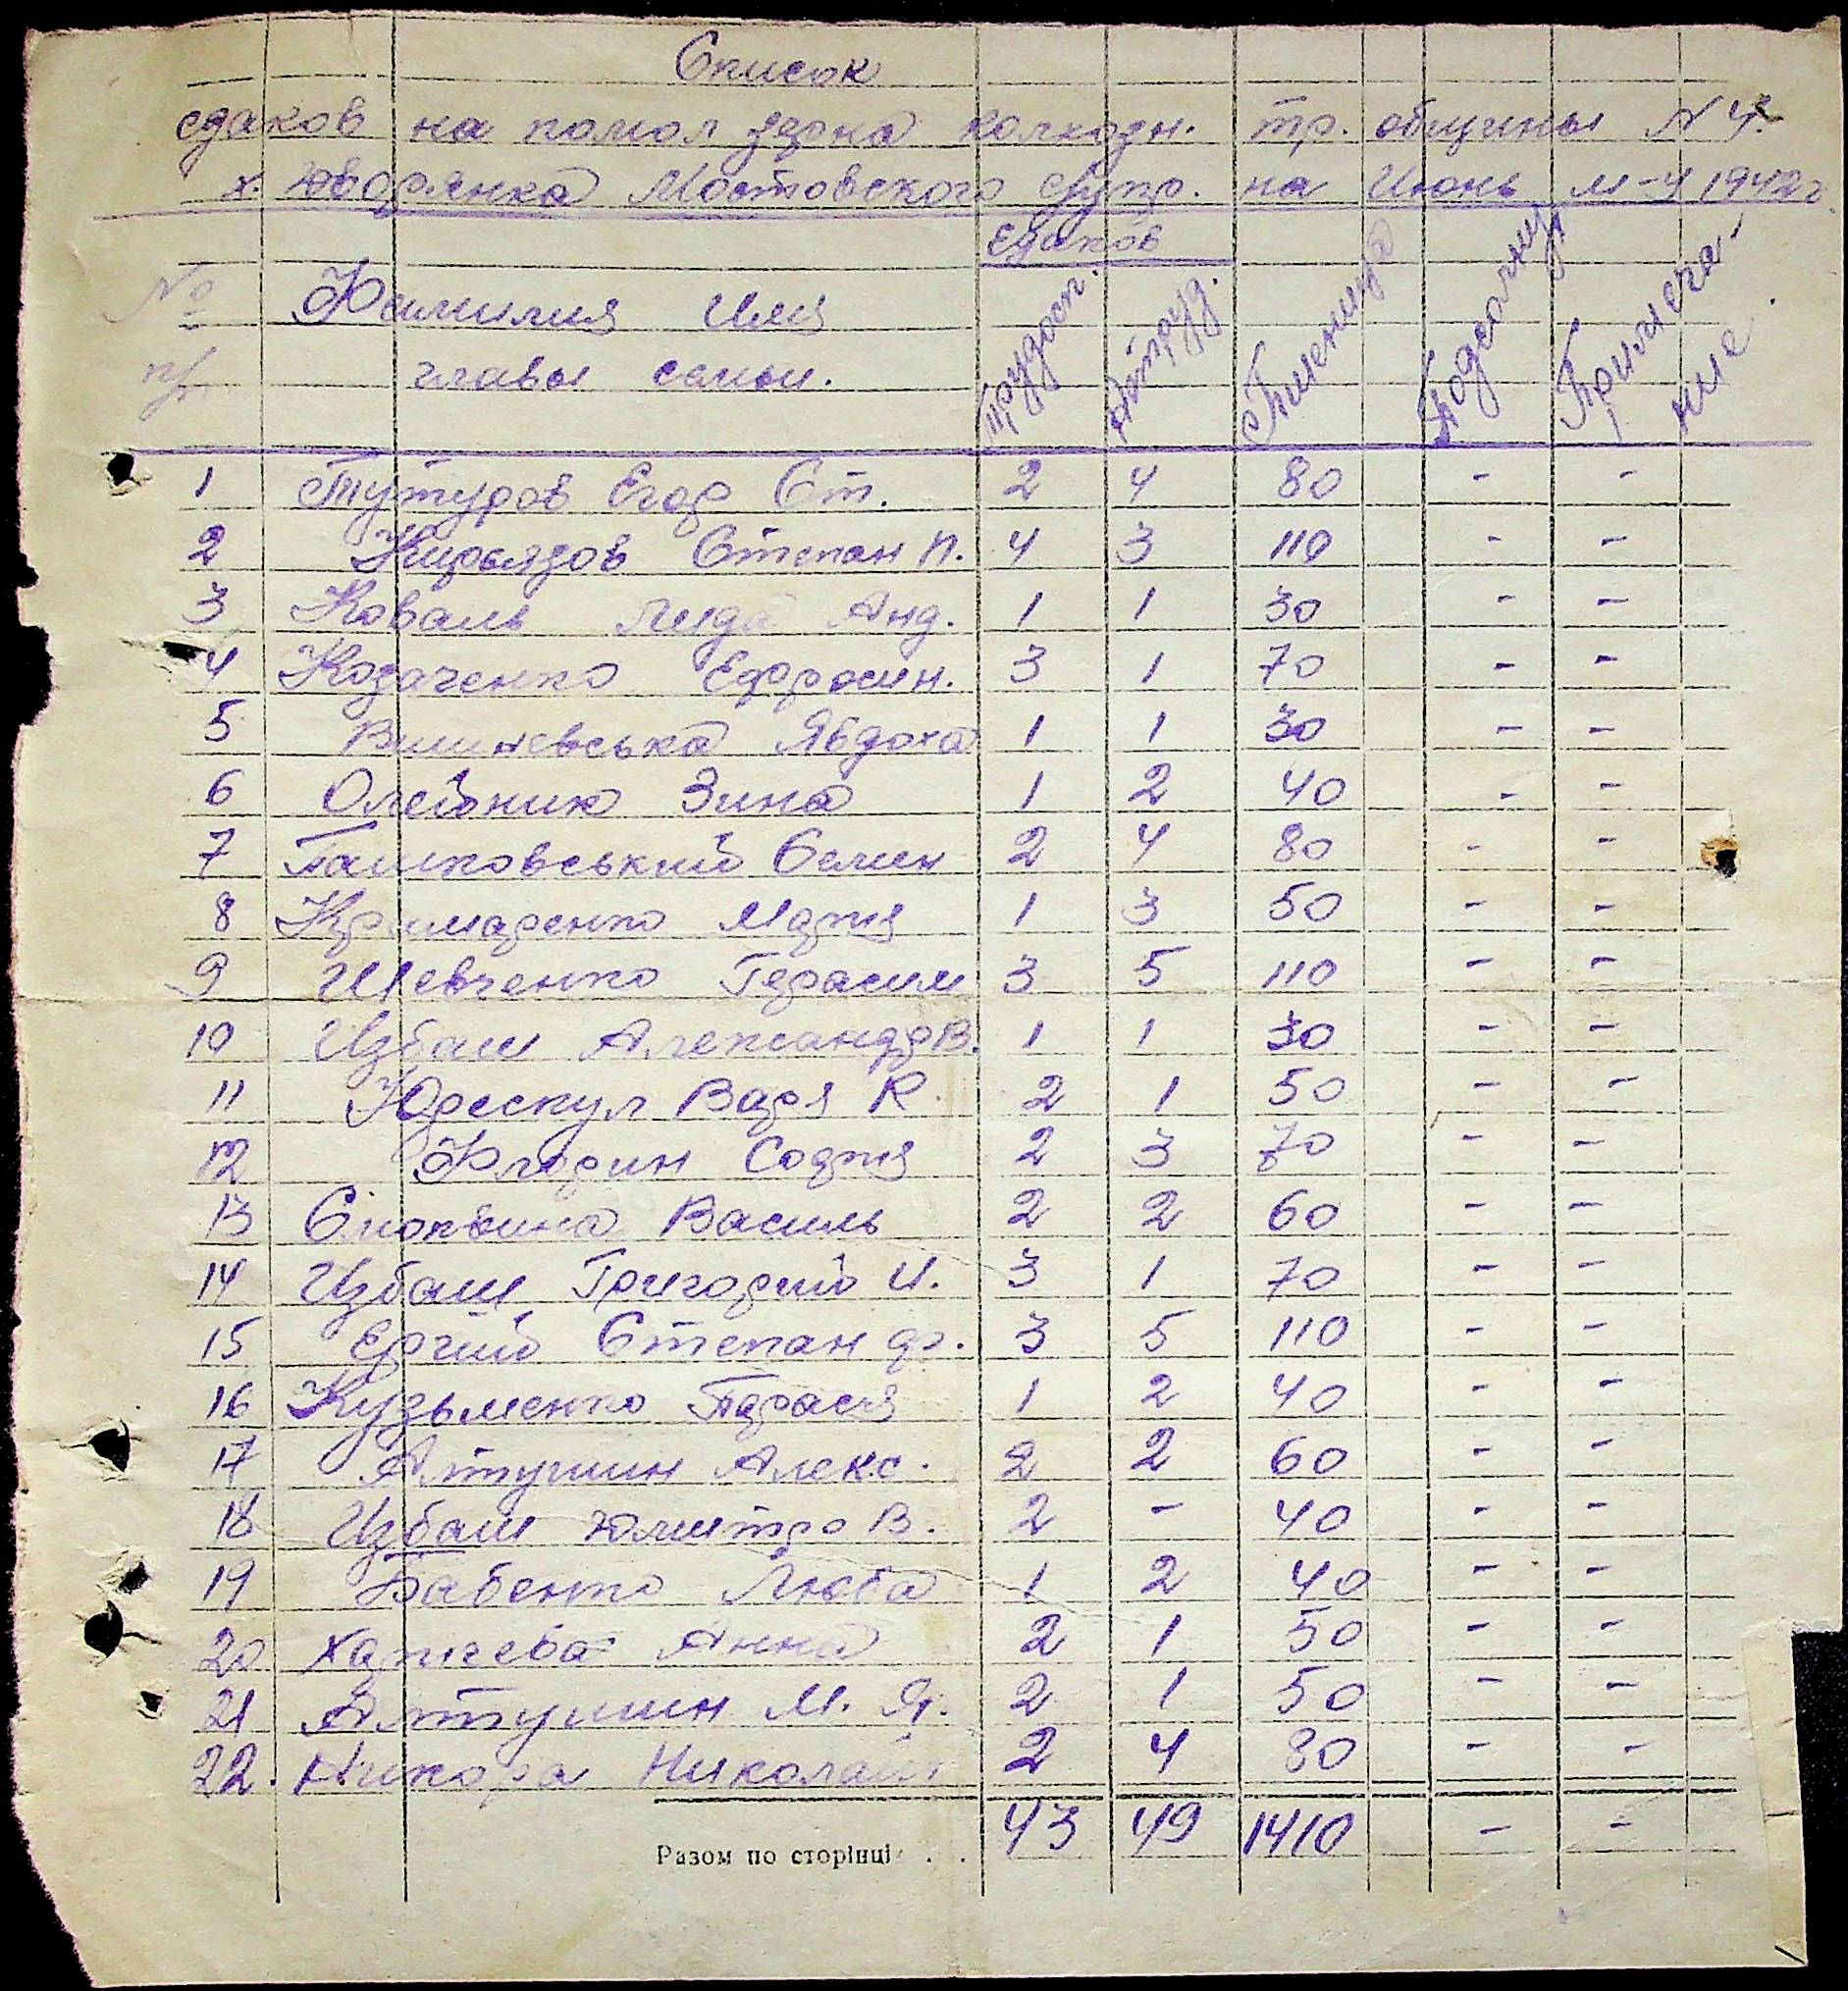 Список
едаков на помол зерна колхозн. тр. общины N 4.
х. Дворянка Мостовского Супр. на Июнь м-ц 1942 г
едаков
№ Фамилия Имя трудосп. Нетруд. Пшеница Подсолнух Примеча-
п/п главы семьи. ние.
1 Тутуров Егор Ст. 2 4 80 - -
2 Кирьязов Степан П. 4 3 110 - -
3 Коваль Лида Анд. 1 1 30 - -
4 Козаченко Ефросин. 3 1 70 - -
5 Вишневська Явдоха 1 1 30 - -
6 Олейник Зина 1 2 40 - -
7 Пашковський Семен 2 4 80 - -
8 Крамаренко Мария 1 3 50 - -
9 Шевченко Герасим 3 5 110 - -
10 Избаш Александр В. 1 1 30 - -
11 Юрескул Варя К. 2 1 50 - -
12 Флорин София 2 3 70 - -
13 Василь 2 2 60 - -
14 Избаш Григорий И. 3 1 70 - -
15 Ергий Степан 3 5 110 - -
16 Кузьменко Парася 1 2 40 - -
17 Алтушин Алекс. 2 2 60 - -
18 Избаш Дмитро В. 2 - 40 - -
19 Бабенко Люба 1 2 40 - -
20 Харичева Анна 2 1 50 - -
21 Алтушин М. Я. 2 1 50 - -
22. Николай 2 4 80 - -
Разом по сторінці . . 43 49 1410 - -